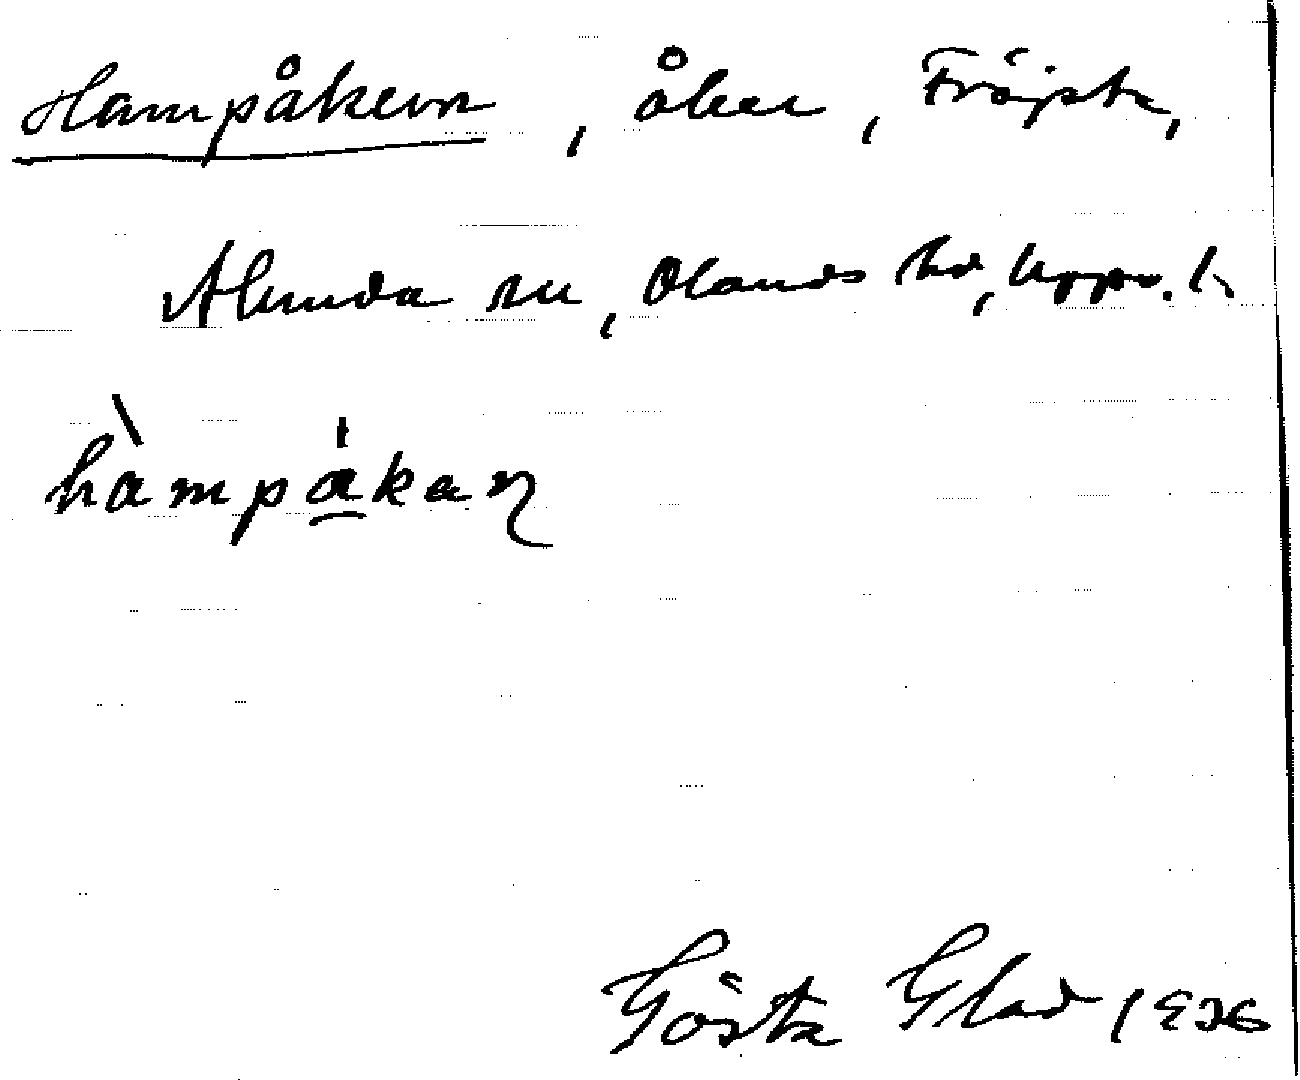 Hampåkern, åker, Fröjsta,
Alunda sn, Olands hd, Uppr. l.
hàmpåkaɳ
Gösta Glad 1926